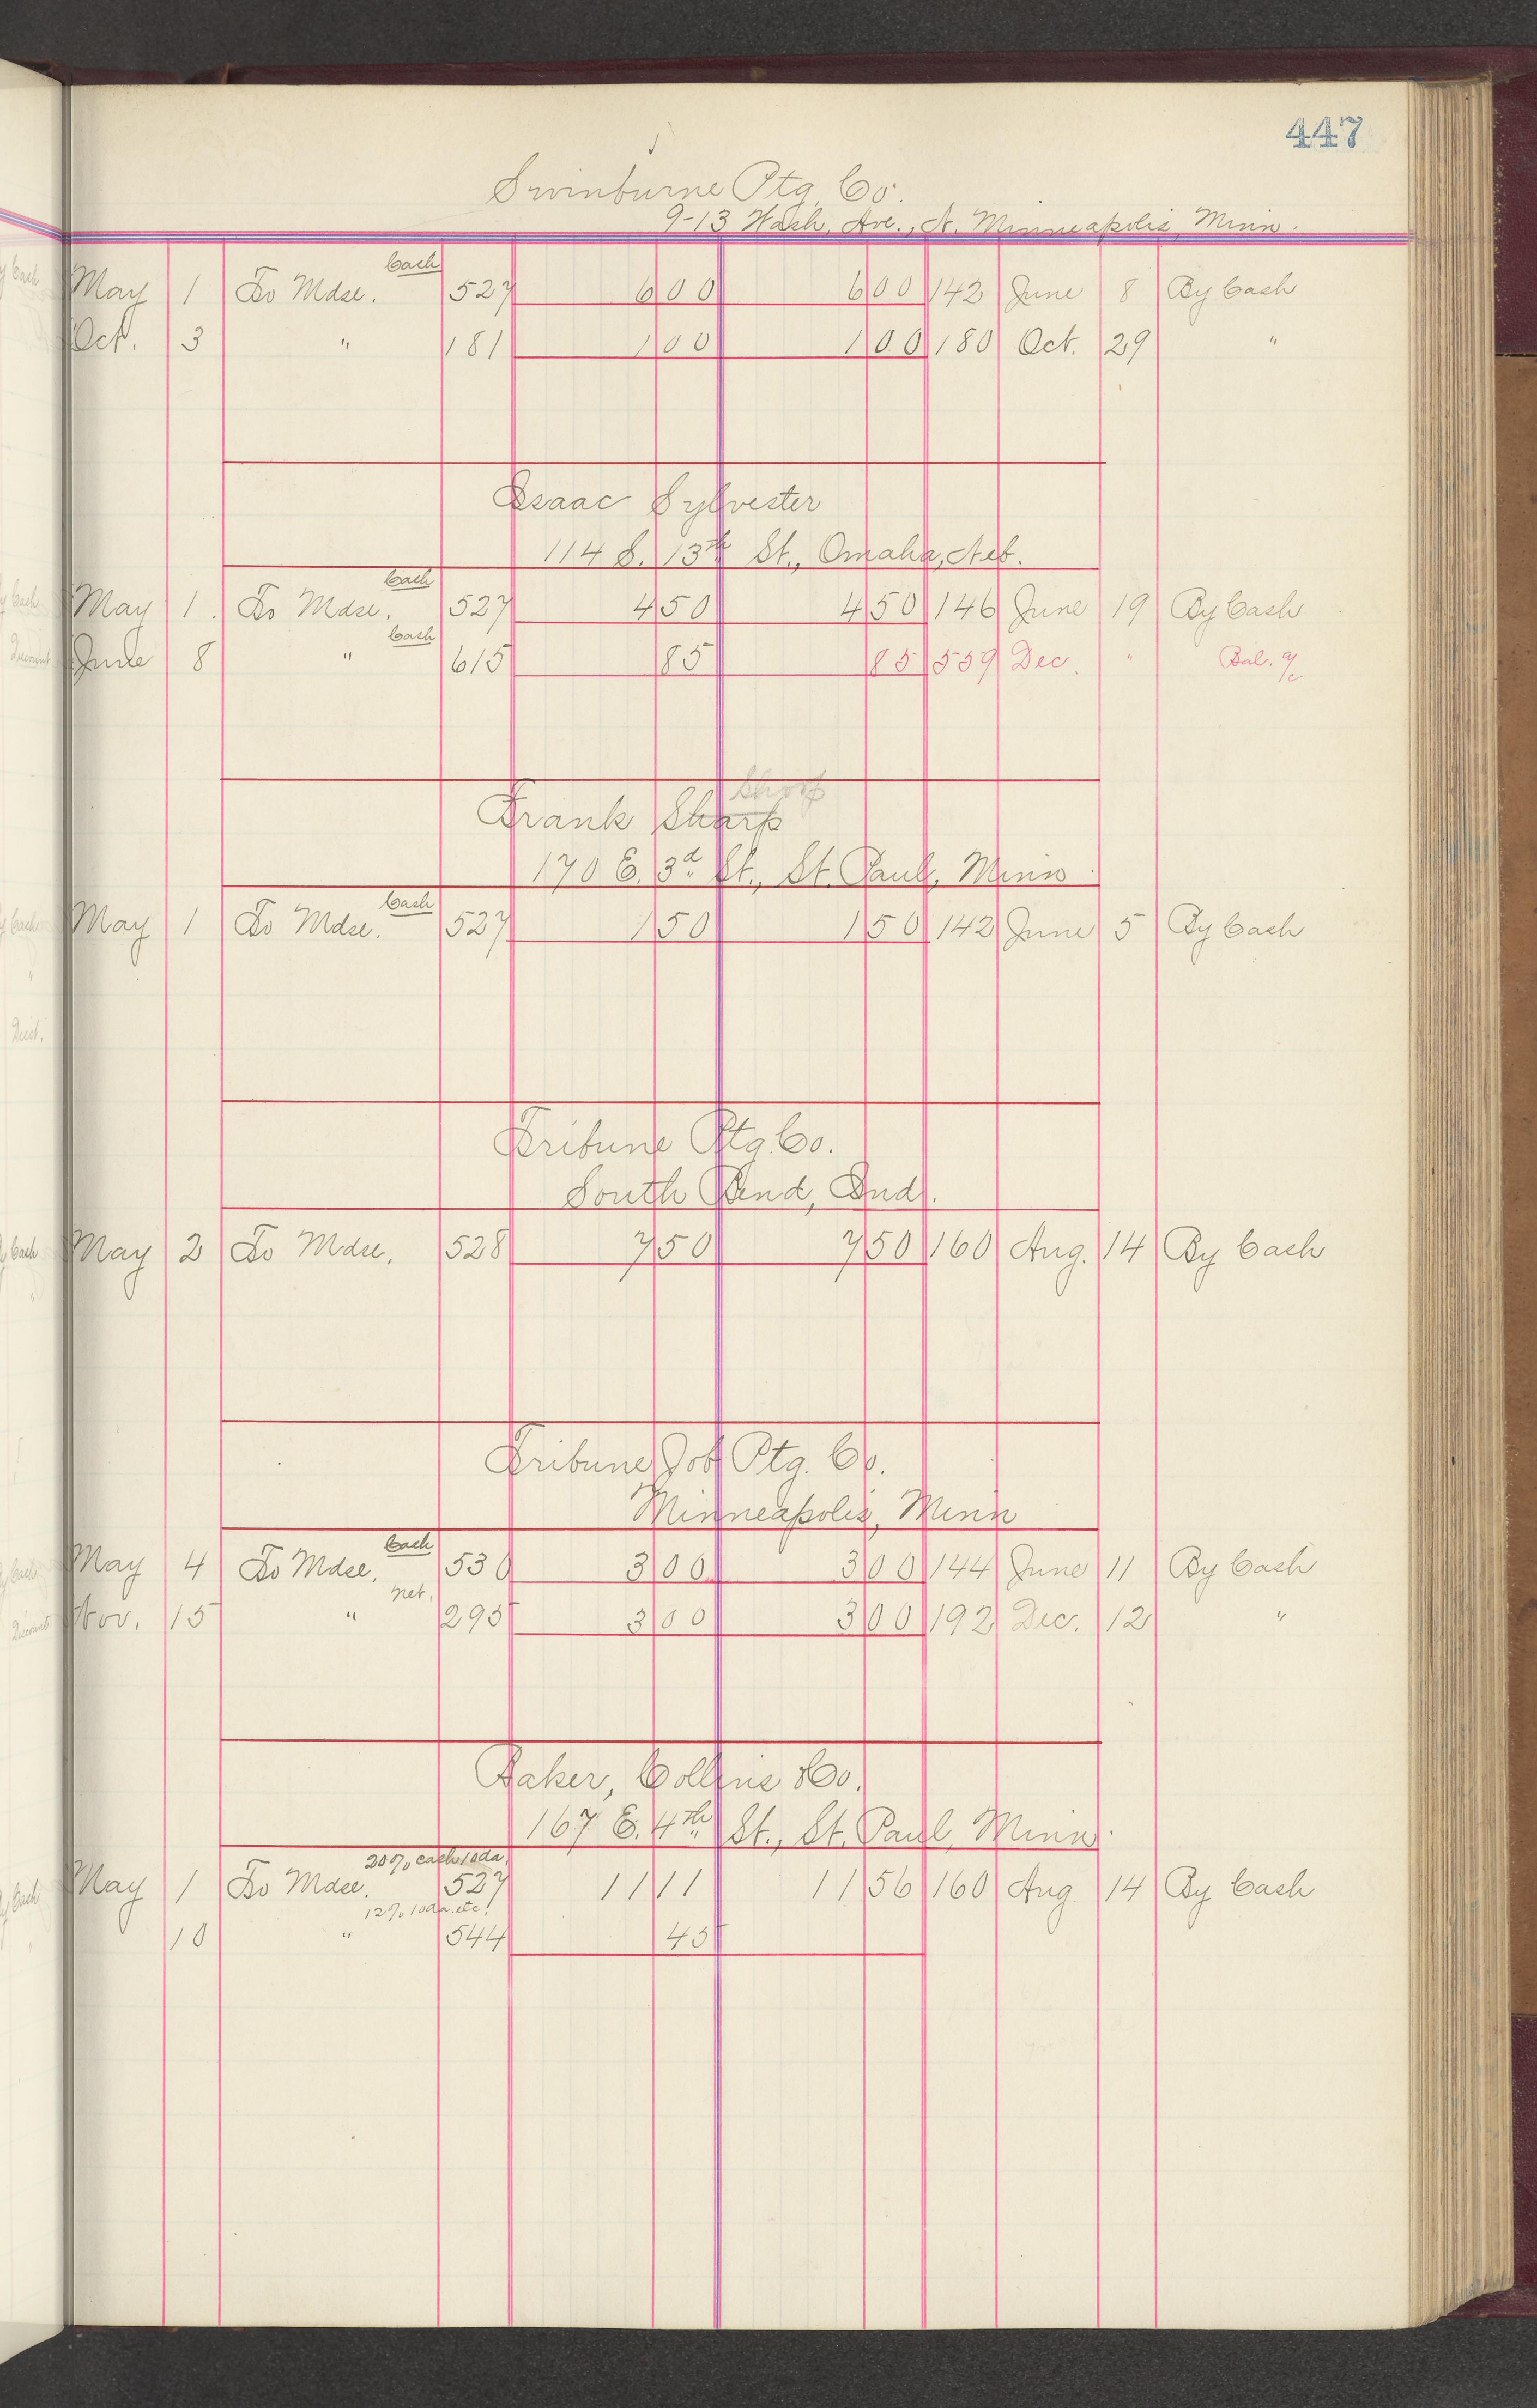 447
Swinburne Ptg. Co.
9-13 Wash. Ave., N. Minneapolis, Minn.
Cash
May 1 To Mdse. 527 6 00 6 00 142 June 8 By Cash
Oct. 3 " 181 1 00 1 00 180 Oct. 29 "
Isaac Sylvester
114 S. 13th St., Omaha, Neb.
Cash
May 1. To Mdse. 527 4 50 4 50 146 June 19 By Cash
Cash
June 8 " 615 85 85 559 Dec. " Bal. a/c
Shoop
Frank Sharp
170 E. 3d St., St. Paul, Minn.
Cash
May 1 To Mdse. 527 1 50 1 50 142 June 5 By Cash
Tribune Ptg. Co.
South Bend, Ind.
May 2 To Mdse. 528 7 50 7 50 160 Aug. 14 By Cash
Tribune Job Ptg. Co.
Minneapolis, Minn
Cash
May 4 To Mdse. 530 3 00 3 00 144 June 11 By Cash
net.
Nov. 15 " 295 3 00 3 00 192 Dec. 12 "
Baker, Collins & Co.
167 E. 4th St., St. Paul, Minn.
20% cash 10 da.
May 1 To Mdse. 527 11 11 11 56 160 Aug 14 By Cash
12% 10 da. etc.
10 " 544 45